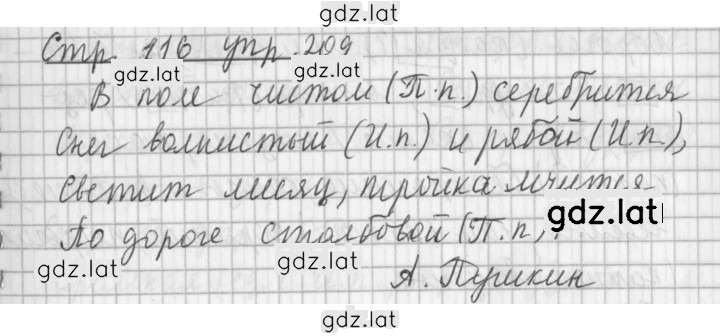 gdz.lat
Стр. 116 упр. 209
gdz.lat gdz.lat
В поле чистом (П.п.) серебрится
Снег волнистый (И.п.) и рябой (И.п.),
Светит месяц, тройка мчится
По дороге столбовой (П.п.).
gdz.lat
gdz.lat gdz.lat
А. Пушкин
gdz.lat